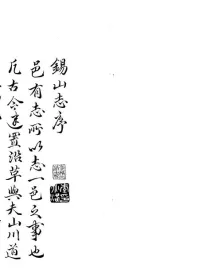 錫山志序
邑有志所以志一邑之事也
凡古今建置沿革與夫山川道